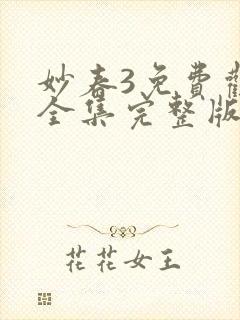 妙春3免費
全集完整版
花花女王